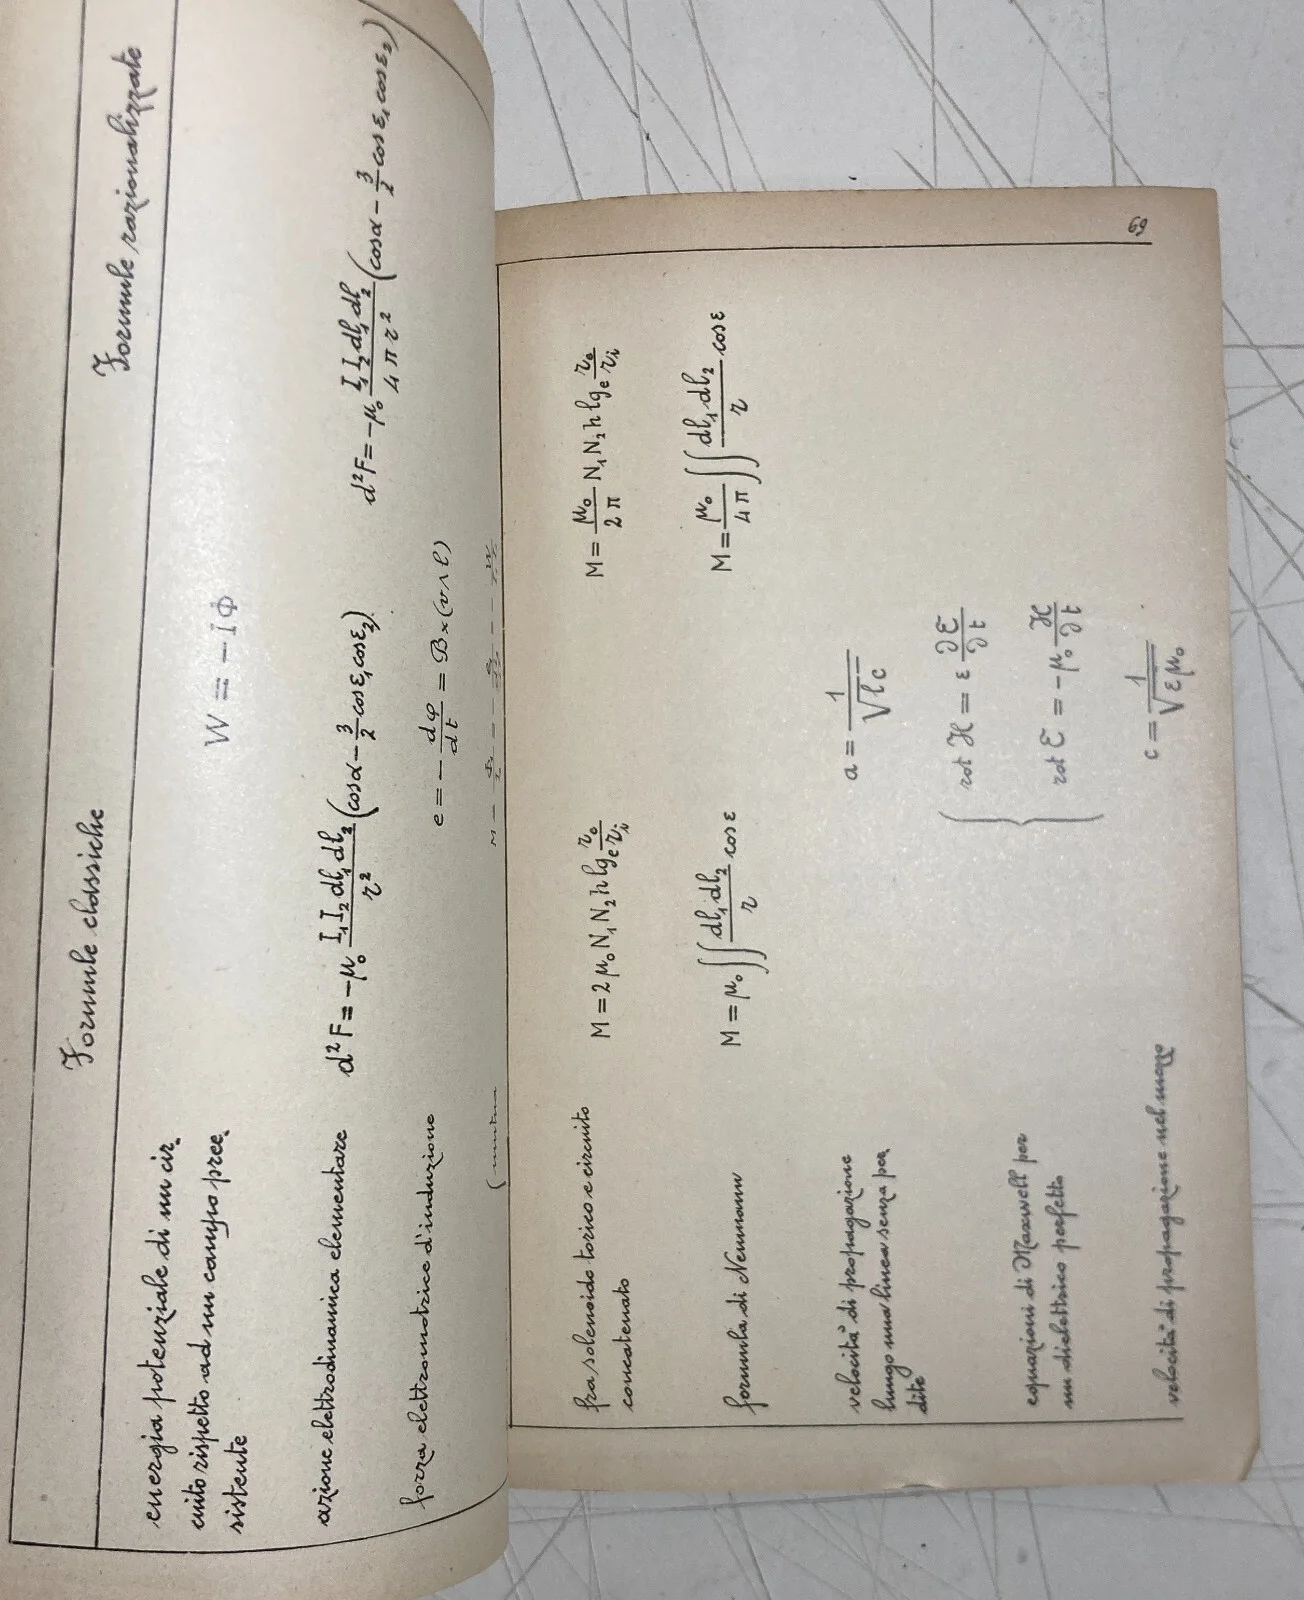 Formule classiche Formule razionalizzate
energia potenziale di un cir-
cuito rispetto ad un campo pree- W = - I Φ
sistente
azione elettrodinamica elementare d²F = -μ₀ I₁I₂dl₁dl₂/r² (cosα - 3/2 cosε₁cosε₂) d²F = -μ₀ I₁I₂dl₁dl₂/4πr² (cosα - 3/2 cosε₁cosε₂)
forza elettromotrice d'induzione e = - dφ/dt = B×(v∧l)
69
fra solenoido torico e circuito M = 2μ₀N₁N₂h lgₑ rₑ/rᵢ M = μ₀/2π N₁N₂h lgₑ rₑ/rᵢ
concatenato
formula di Neumann M = μ₀∬ dl₁dl₂/r cosε M = μ₀/4π ∬ dl₁dl₂/r cosε
velocità di propagazione
lungo una linea senza per- a = 1/√lc
dite
equazioni di Maxwell per rot H = ε ∂E/∂t
un dielettrico perfetto rot E = -μ₀ ∂H/∂t
velocità di propagazione nel mezzo c = 1/√εμ₀